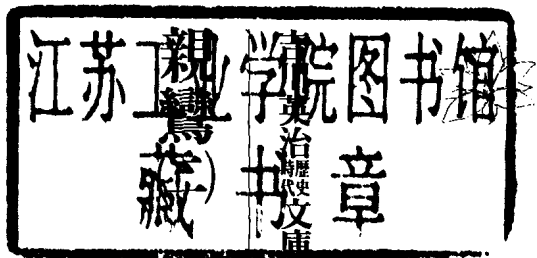 江苏工业学院图书馆
藏书章
吉川英治歴史時代文庫
親鸞